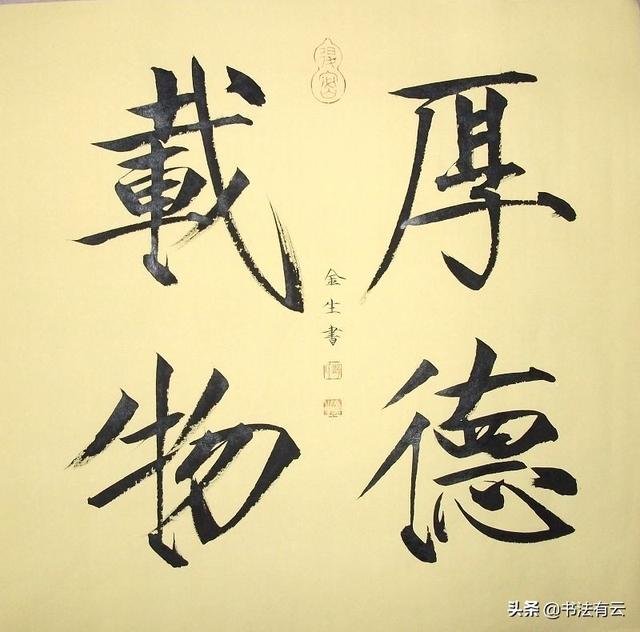 厚德
載物
金生書
头条 @书法有云